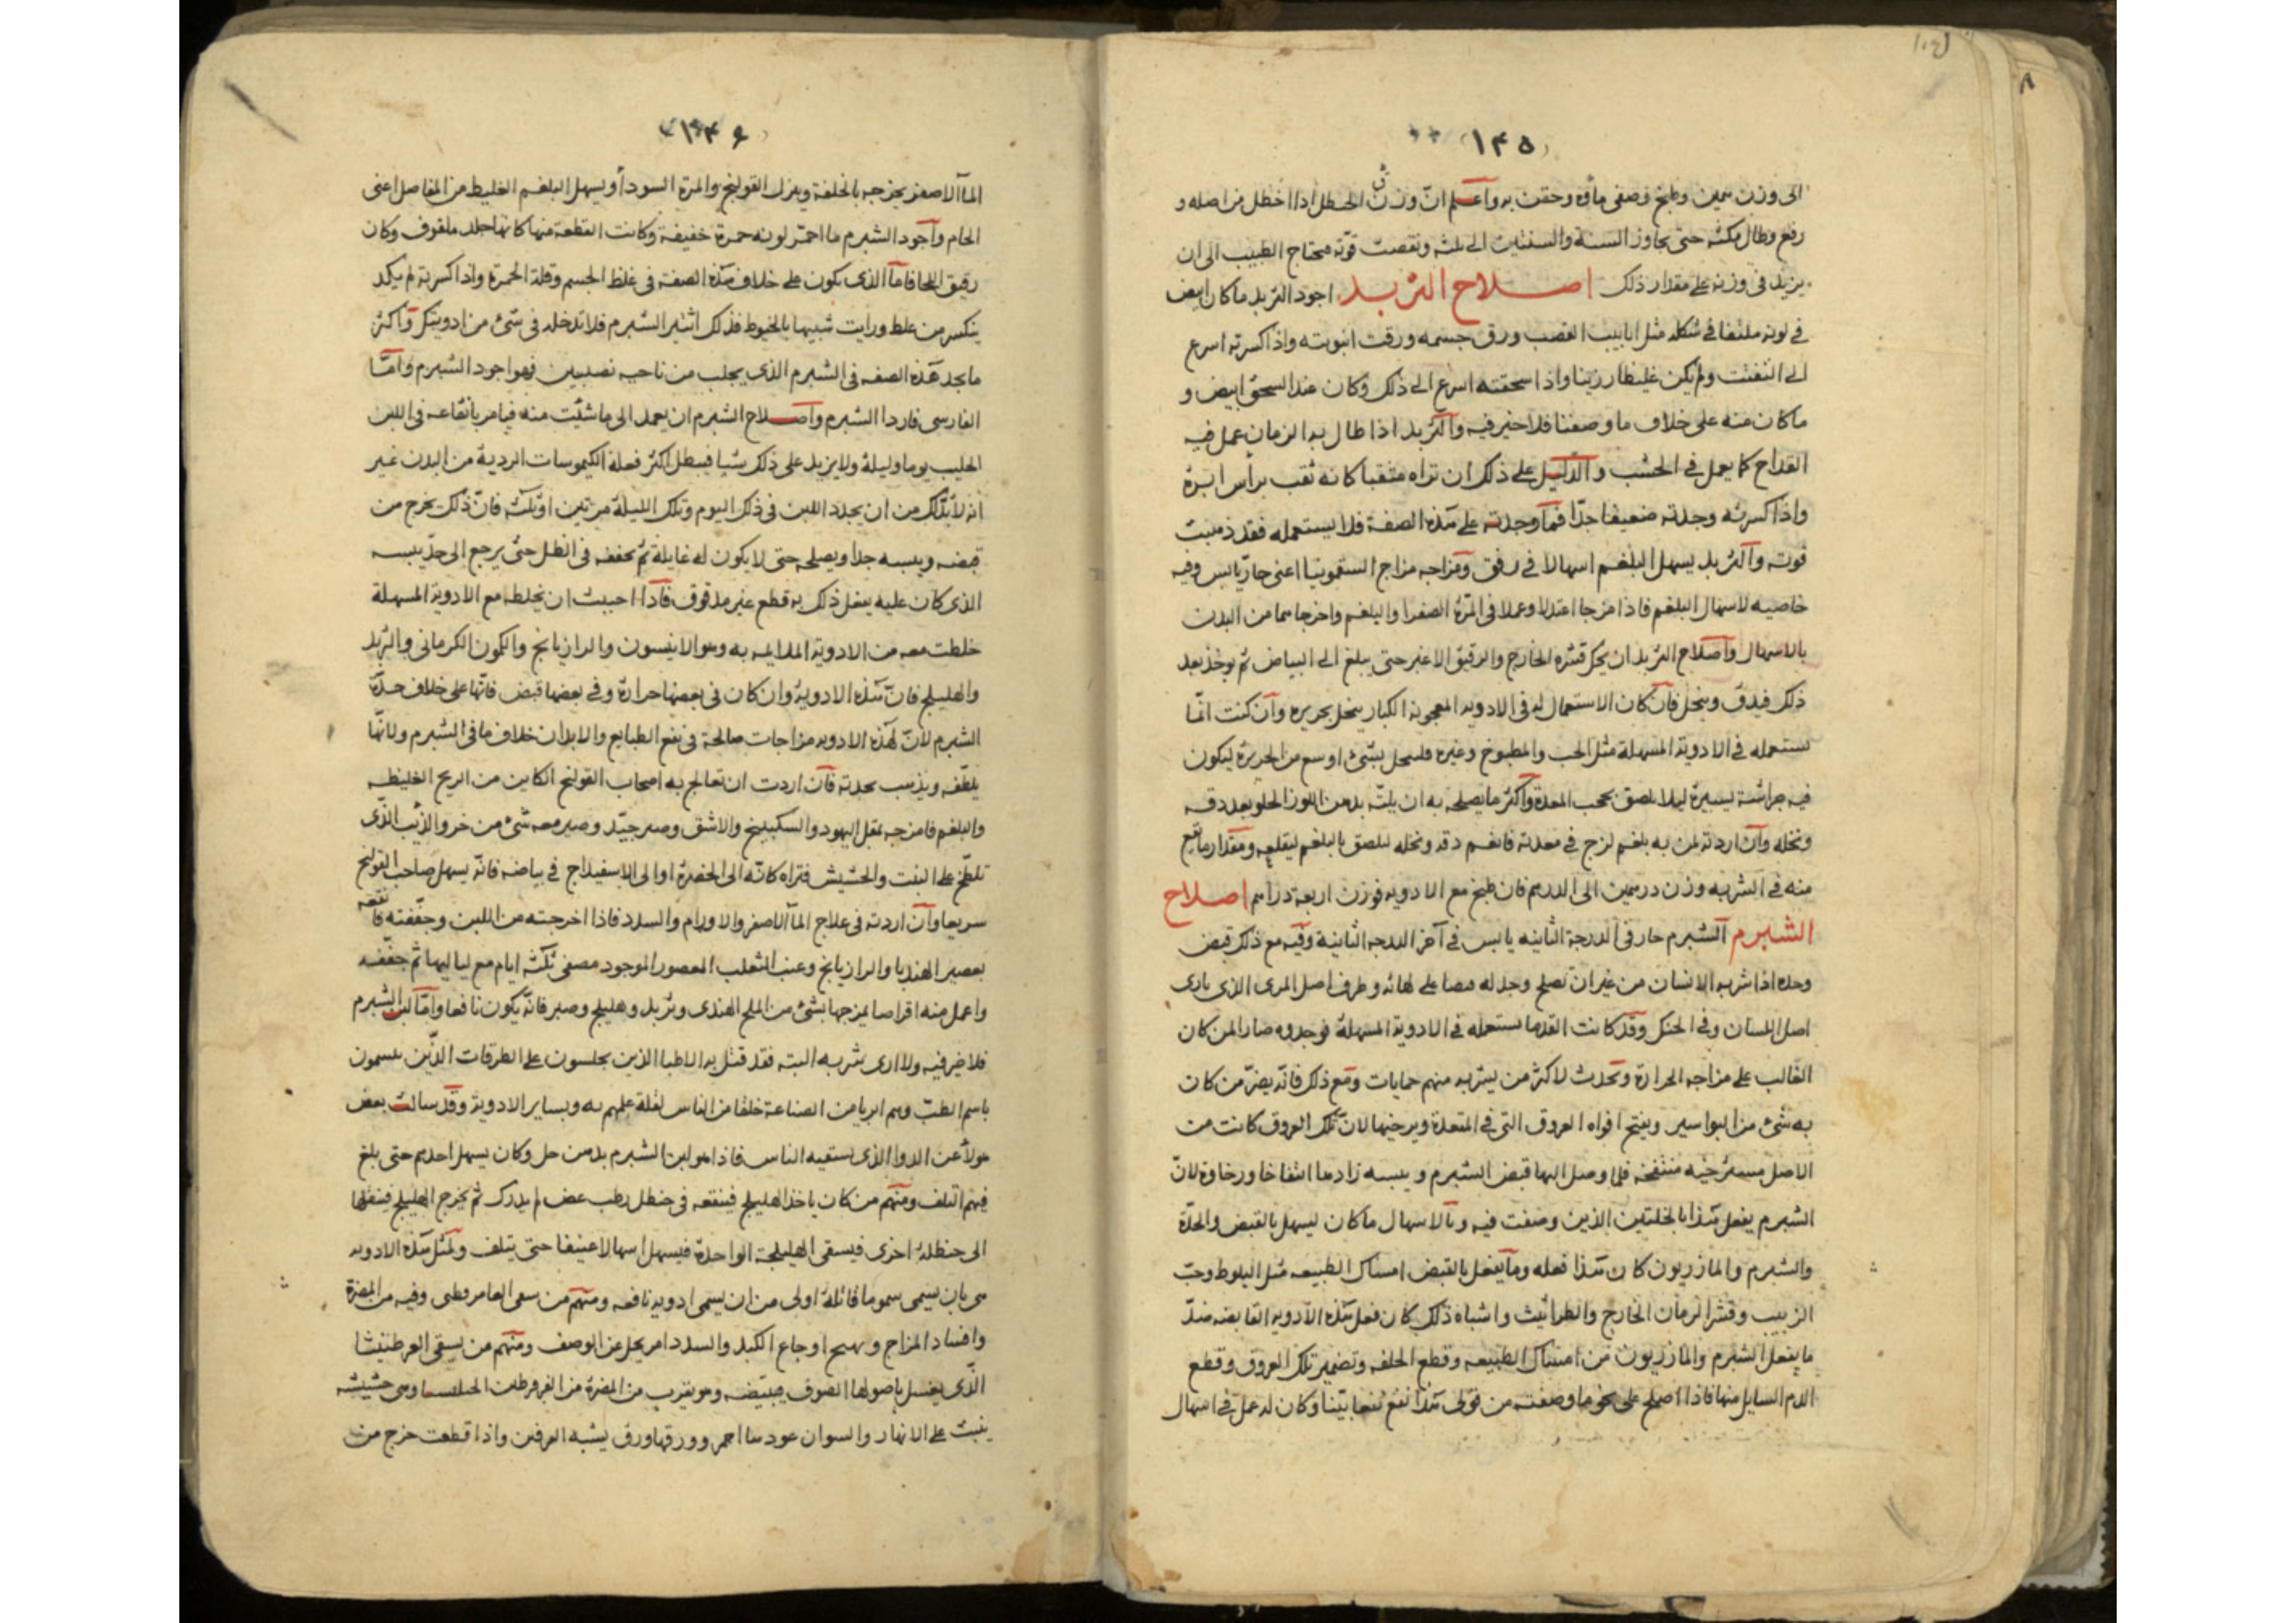 ١٤٥
الى وزن سمين وطبخ وصفى مأوه وحقن به واعلم انّ وزن الحنظل اذا اخطل من اصله و
رفع وطال مكثه حتى يجاوز السنة والسنتين الى ثلثه ونقصت قوّته محتاج الطبيب الى ان
يزيد فى وزنه على مقدار ذلك اصلاح التربد اجود التربد ما كان ابيض
فى لونه ملتفا فى شكله مثل انابيب القصب ورق جسمه ورقت انبوبته واذا كسرته اسرع
الى التفتت ولم يكن غليظا رزينا واذا سحقته اسرع الى ذلك وكان عند السحق ابيض و
ما كان منه على خلاف ما وصفنا فلا خير فيه والتربد اذا طال به الزمان عمل فيه
القداح كما يعمل فى الخشب والدليل على ذلك ان تراه مثقبا كانه ثقب برأس ابرة
واذا كسرته وجدته ضعيفا جدّا فمّا وجدته على هذه الصفة فلا يستعمله فقد ذهبت
قوته والتربد يسهل البلغم اسهالا فى رفق ومزاجه مزاج السقمونيا اعنى حارّ يابس وفيه
خاصيه لاسهال البلغم فاذا مزجا اعتدلا وعملا فى المرّة الصفرا والبلغم واخرجاهما من البدن
بالاسهال واصلاح التربد ان يحك قشره الخارج والرقيق الاغبر حتى يبلغ الى البياض ثم يوخذ بعد
ذلك فيدق وينخل فان كان الاستعمال له فى الادويه المعجونه الكبار ينخل بحريره وان كنت انّما
تستعمله فى الادوية المسهلة مثل الحب والمطبوخ وغيره فلينخل بشئ اوسع من الحريرة ليكون
فيه جراشة يسيرة ليلا يلصق بخمل المعدة واكثر ما يصلح به ان يلتّ بدهن اللوز الحلو بعد دقه
ونخله وان اردته لمن به بلغم لزج فى معدته فانعم دقه ونخله ليلصق بالبلغم ليقلعه ومقدار ما يقع
منه فى الشربه وزن درهمين الى الدرهم فان طبخ مع الادويه فوزن اربعة دراهم اصلاح
الشبرم الشبرم حار فى الدرجة الثانيه يابس فى آخر الدرجه الثانية وفيه مع ذلك قبض
وحده اذا شربه الانسان من غير ان يصلح وجد له قبضا على لهاته وطرف اصل المرى الذى يازى
اصل اللسان وفى الحنك وقد كانت القدما تستعمله فى الادوية المسهلة فوجدوه ضارا لمن كان
الغالب على مزاجه الحرارة وتحدث لاكثر من يشربه منهم حمايات ومع ذلك فانّه يضرّ من كان
به شئ من البواسير ويفتح افواه العروق التى فى المقعدة ويرخيها لانّ تلك العروق كانت من
الاصل مسترخيه منتفخه فلما وصل اليها قبض الشبرم ويبسه زادها انتفاخا ورخاوة لانّ
الشبرم يفعل هذا بالخلتين الذين وصفت فيه وبالاسهال ما كان ليسهل بالقبض والحدّة
والشبرم والمازريون كان هذا فعله وما يفعل بالقبض امساك الطبيعه مثل البلوط وحبّ
الزبيب وقشر الرمان الخارج والطراثيث واشباه ذلك كان فعل هذه الادويه القابضه ضدّ
ما يفعل الشبرم والمازريون من امساك الطبيعه وقطع الخلفه وتضمير تلك العروق وقطع
الدم السايل منها فاذا اصلح على نحو ما وصفته من قولى هذا نفع نفعا بيّنا وكان له عمل فى اسهال
١٤٦
المآ الاصفر يخرجه بالخلفة ويزل القولنج والمرة السودأ ويسهل البلغم الغليظ من المفاصل اعنى
الخام واجود الشبرم ما احمّر لونه حمرة خفيفة وكانت القطعة منها كانها جلد ملفوف وكان
رقيق اللحا فامّا الذى يكون على خلاف هذه الصفة فى غلظ الجسم وقلة الحمرة واذا كسرته لم يكد
ينكسر من غلظ ورايت شبيها بالخيوط فذلك اشر الشبرم فلا تدخله فى شئ من ادويتك واكثر
ما يجد هذه الصفه فى الشبرم الذى يجلب من ناحيه نصيبين فهو اجود الشبرم وامّا
الفارسى فاردا الشبرم واصلاح الشبرم ان يعمد الى ما شئت منه فيامر بانقاعه فى اللبن
الحليب يوما وليلة ولا يزيد على ذلك شيا فيبطل اكثر فعله الكيموسات الردية من البدن غير
انه لا بدّلك من ان يجدد اللبن فى ذلك اليوم وتلك الليلة مرتين او ثلثه فانّ ذلك يخرج من
قبضه ويبسه جدا ويصلحه حتى لا يكون له غايلة ثم يجففه فى الظل حتى يرجع الى حدّ يبسه
الذى كان عليه يفعل ذلك به قطع غير مدقوق فاذا احببت ان تخلطه مع الادوية المسهلة
خلطت معه من الادوية الملايمه به وهو الانيسون والرازيانج والكمون الكرمانى والتربد
والهليلج فانّ هذه الادوية وان كان فى بعضها حرارة وفى بعضها قبض فانّها على خلاف حدّة
الشبرم لانّ لهذه الادويه مزاجات صالحة فى نفع الطبايع والابدان خلاف ما فى الشبرم ولانّها
يلطّفه ويذهب بحدته فان اردت ان تعالج به اصحاب القولنج الكاين من الريح الغليظه
والبلغم فامزجه بمقل اليهود والسكبينج والاشق وصبر جيّد وصير معه شئ من خرو الذئب الذّى
تلطخ على النبت والحشيش فتراه كانّه الى الخضرة او الى الاسفيداج فى بياضه فانّه يسهل صاحب القولنج
سريعا وان اردته فى علاج المآ الاصفر والاورام والسدد فاذا اخرجته من اللبن وجفّفته فانقعه
بعصير الهندبا والرازيانج وعنب الثعلب المعصور الموجود مصفى ثلثه ايام مع لياليها ثم جفّفه
واعمل منه اقراصا يمزجها بشئ من الملح الهندى وتربد وهليلج وصبر فانّه يكون نافعا وامّا لبن الشبرم
فلا خير فيه ولا ارى شربه البته فقد قتل به الاطبا الذين يجلسون على الطرقات الذّين يسمون
باسم الطبّ وهم ابريا من الصناعة خلقا من الناس لقلة علمهم به وبساير الادوية وقد سالت بعض
هولأ عن الدوا الذى يسقيه الناس فاذا هو لبن الشبرم بدهن حل وكان يسهل احدهم حتى بلغ
فيهم التلف ومنهم من كان ياخذ الهليلج فينقعه فى حنظل رطب عض لم يدرك ثم يخرج الهليلج فينقلها
الى حنظلة اخرى فيسقى الهليلجة الواحدة فيسهل اسهالا عنيفا حتى يتلف ولمثل هذه الادويه
هى بان يسمى سموما قاتلة اولى من ان يسمى ادويه نافعه ومنهم من سقى وفيه من المضرة
وافساد المزاج وتهيج اوجاع الكبد والسدد امر يجل عن الوصف ومنهم من يسقى العرطنيثا
الّذى يغسل باصولها الصوف فيبيّضه وهو يقرب من المضرة من وهى حشيشه
ينبت على الانهار والسوان عودها احمر وورقها ورق يشبه واذا قطعت خرج من